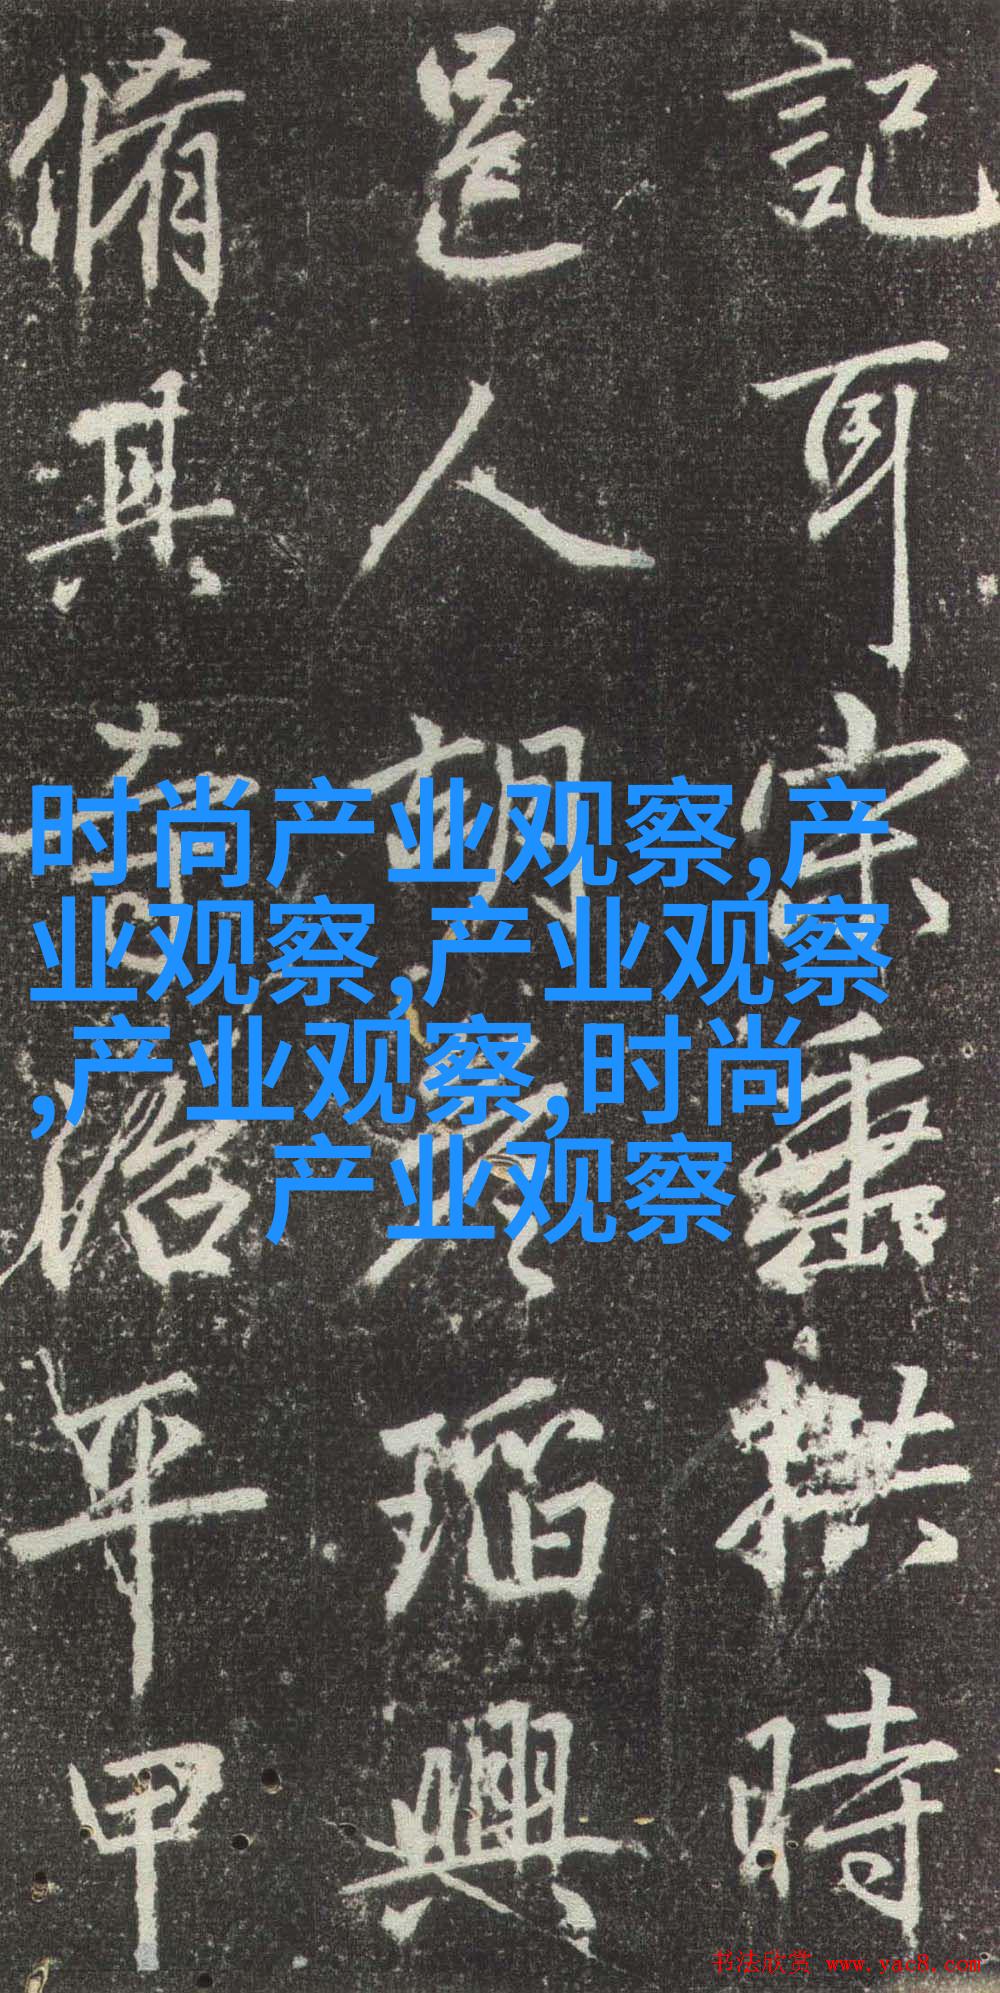 記耳宗垂拱時
邑人胡瑫興
脩其治平甲
时尚产业观察,产
业观察,产业观察
,产业观察,时尚
产业观察
书法欣赏 www.yac8.com